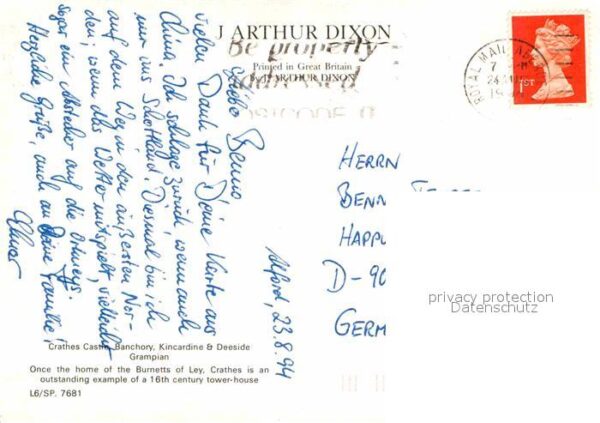 J ARTHUR DIXON
Be properly
addressed
POSTCODE
Printed in Great Britain
By J. ARTHUR DIXON
ROYAL MAIL
7
24
19
1ST
Alford, 23.8.94
Liebe Benno,
vielen Dank für Deine Karte aus
China. Ich schlage zurück, wenn auch
nur aus Schottland. Diesmal bin ich
auf dem Weg in den äußersten Nor-
den; wenn das Wetter mitspielt, vielleicht
sogar ein Abstecher auf die Orkneys.
Herzliche Grüße, auch an Deine Familie!
HERRN
BENN
HAPPU
D-90
GERM
privacy protection
Datenschutz
Crathes Castle, Banchory, Kincardine & Deeside
Grampian
Once the home of the Burnetts of Ley, Crathes is an
outstanding example of a 16th century tower-house
L6/SP. 7681